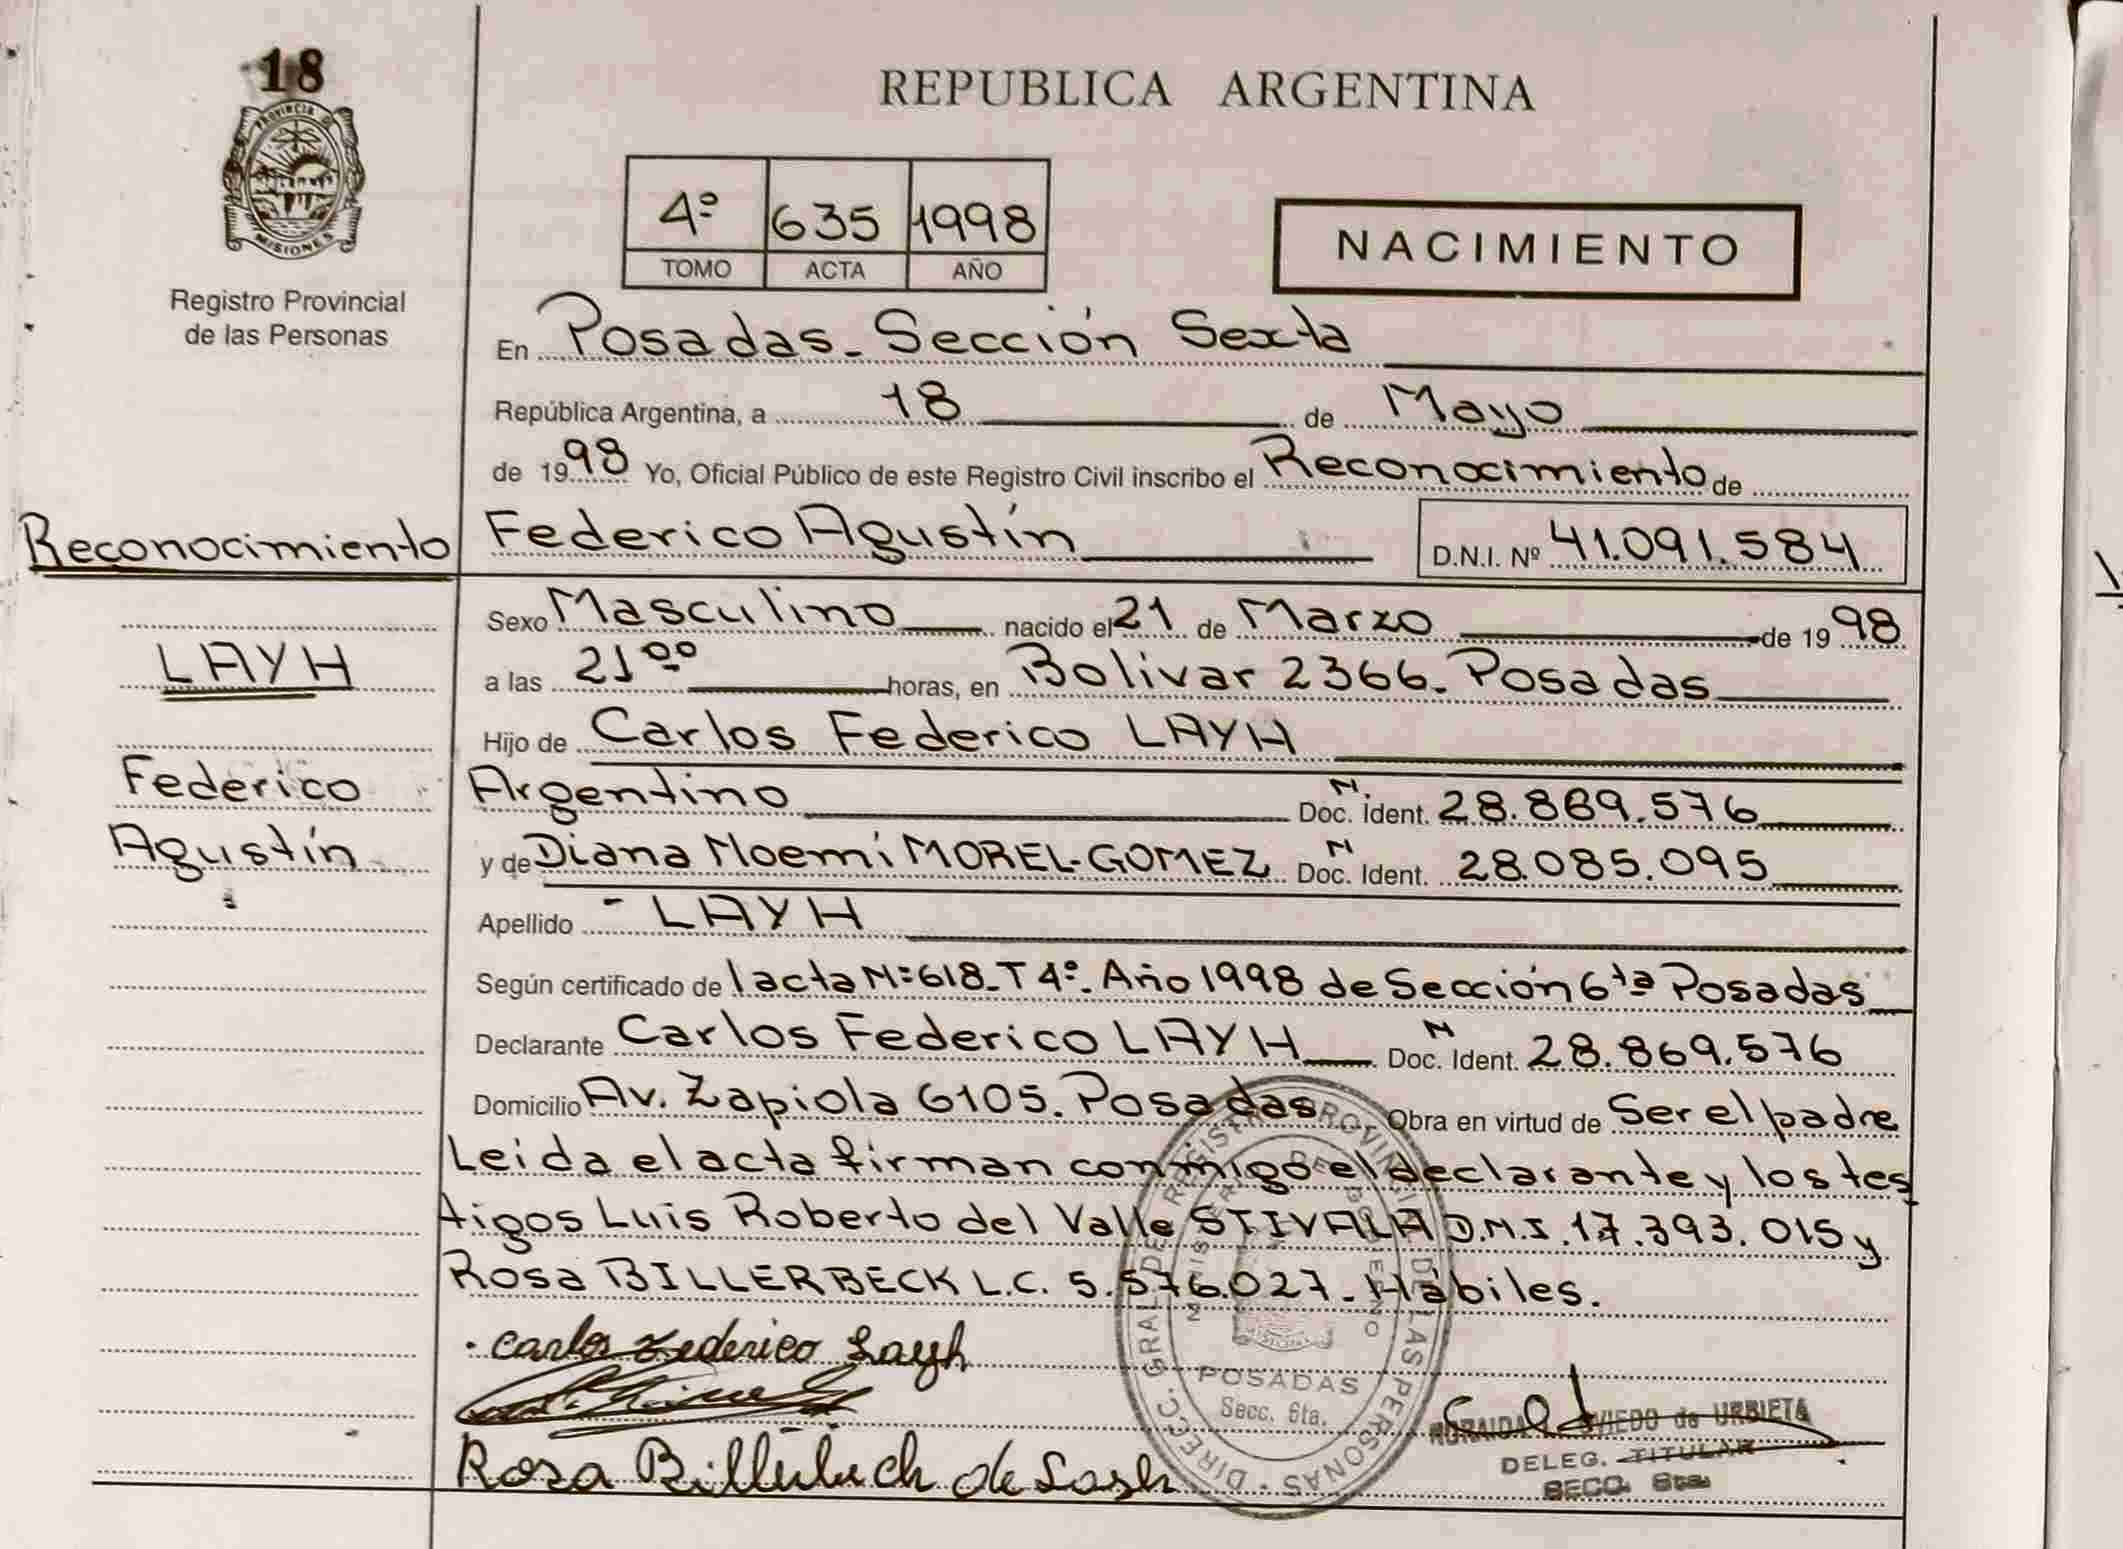 18
PROVINCIA DE
MISIONES
Registro Provincial
de las Personas
REPUBLICA ARGENTINA
4º 635 1998
TOMO ACTA AÑO
NACIMIENTO
En Posadas - Sección Sexta
República Argentina, a 18 de Mayo
de 1998 Yo, Oficial Público de este Registro Civil inscribo el Reconocimiento de
Reconocimiento
Federico Agustín D.N.I. Nº 41.091.584
LAYH
Federico
Agustín
Sexo Masculino nacido el 21 de Marzo de 1998
a las 21ºº horas, en Bolivar 2366. Posadas
Hijo de Carlos Federico LAYH
Argentino N. Doc. Ident. 28.869.576
y de Diana Noemí MOREL-GOMEZ N Doc. Ident. 28.085.095
Apellido - LAYH
Según certificado de lacta Nº 618 - T 4º - Año 1998 de Sección 6ta Posadas
Declarante Carlos Federico LAYH N Doc. Ident. 28.869.576
Domicilio Av. Zapiola 6105. Posadas Obra en virtud de Ser el padre
Leida el acta firman conmigo el declarante y los tes
tigos Luis Roberto del Valle STIVALA D.N.I. 17.393.015 y
Rosa BILLERBECK L.C. 5.576.027 - Hábiles.
Carlos Federico Layh
Rosa
DIRECC. GRAL DE REGISTRO PROVINCIAL DE LAS PERSONAS
MINISTERIO DE GOBIERNO
POSADAS
Secc. 6ta.
OVIEDO de URBIETA
DELEG. TITULAR
SECC. 6ta